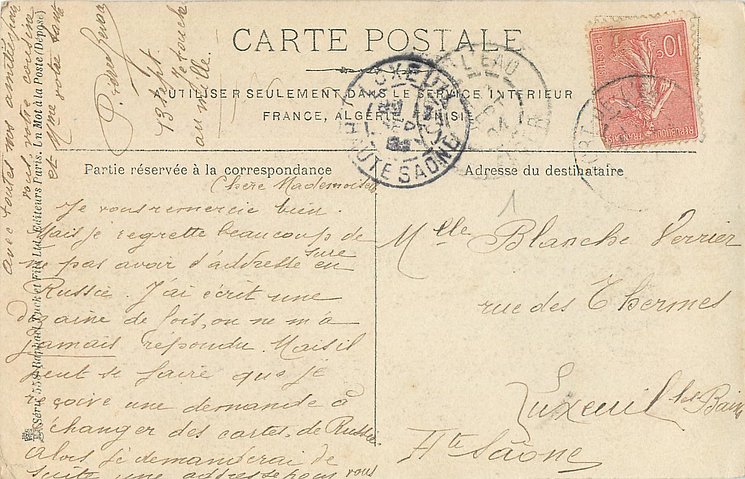 CARTE POSTALE
UTILISER SEULEMENT DANS LE SERVICE INTÉRIEUR
FRANCE, ALGÉRIE, TUNISIE
Partie réservée à la correspondance
Adresse du destinataire
Chère Mademoiselle
Je vous remercie bien.
Mais je regrette beaucoup de
ne pas avoir d'adresse sure en
Russie. J'ai écrit une
dizaine de fois, on ne m'a
jamais répondu. Mais il
peut se faire que je
reçoive une demande à
échanger des cartes de Russie
alors je demanderai de
suite une adresse pour vous
avec toutes nos amitiés pour
vous votre cousine
et Mme votre tante
13 7bre
au mille.
Mlle Blanche Verrier
rue des Thermes
Luxeuil les Bains
Hte Saône
1
Série 555 Raphael Tuck et Fils Ltd. Éditeurs Paris. Un Mot à la Poste (Déposé)
LUXEUIL
HAUTE SAONE
L'EAU
10c
RÉPUBLIQUE FRANÇAISE